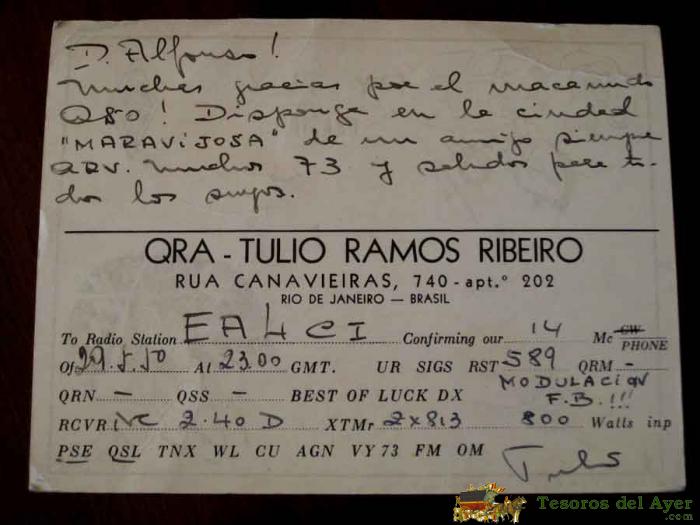 D. Alfonso!
Muchas gracias por el macanudo
QSO! Disponga en la ciudad
"MARAVIJOSA" de un amigo siempre
QRV. Muchos 73 y saludos para to-
dos los suyos.
QRA - TULIO RAMOS RIBEIRO
RUA CANAVIEIRAS, 740 - apt.º 202
RIO DE JANEIRO — BRASIL
To Radio Station EA4CI Confirming our 14 Mc CW PHONE
Of 29.5.50 At 23.00 GMT. UR SIGS RST 589 QRM -
QRN - QSS - BEST OF LUCK DX MODULACION F.B.!!!
RCVR NC 2.40 D XTMr 2x813 800 Watts inp
PSE QSL TNX WL CU AGN VY 73 FM OM Tulio
Tesoros del Ayer.com